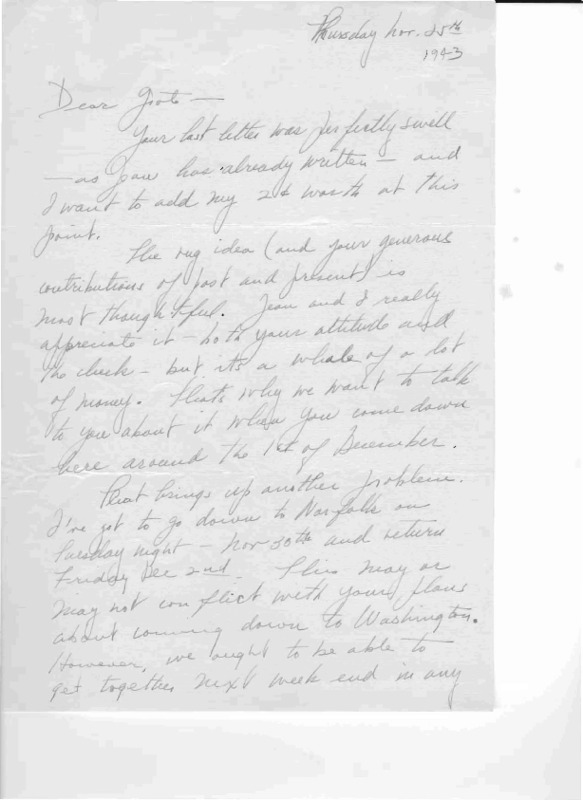 Thursday Nov. 25th
1943
Dear Groto —
Your last letter was perfectly swell
— as Jean has already written — and
I want to add my 2¢ worth at this
point.
The rug idea (and your generous
contributions of past and present) is
most thoughtful. Jean and I really
appreciate it — both your attitude and
the check — but it's a whale of a lot
of money. That's why we want to talk
to you about it when you come down
here around the 1st of December.
That brings up another problem.
I've got to go down to Norfolk on
Tuesday night — Nov 30th and return
Friday Dec 2nd. This may or
may not conflict with your plans
about coming down to Washington.
However, we ought to be able to
get together next week end in any